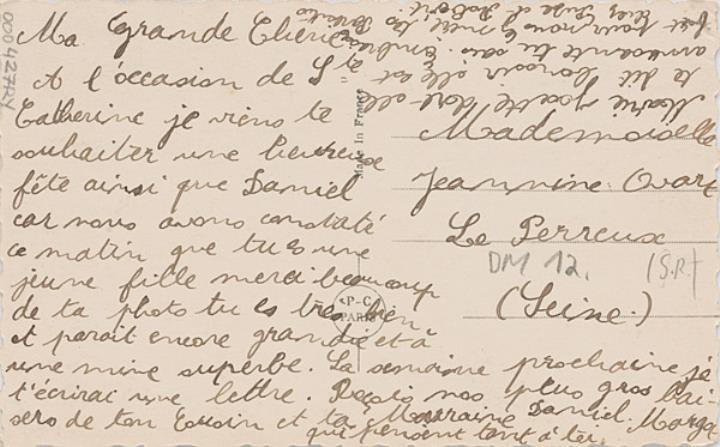 Ma Grande Chérie
A l'occasion de Ste
Catherine je viens te
souhaiter une heureuse
fête ainsi que Daniel
car nous avons constaté
ce matin que tu es une
jeune fille merci beaucoup
de ta photo tu es très bien
et parait encore grandie et à
une mine superbe. La semaine prochaine je
t'écrirai une lettre. Reçois nos plus gros bai-
sers de ton Cousin et ta Marraine Daniel. Margot
qui pensent tant à toi
Marie Josette
te dit bonsoir elle est
amusante tu sais. Embrasse
pour nous
Mademoiselle
Jeannine Ovart
Le Perreux
(Seine.)
DM 12.
(S.R)
Made In France
P-C
PARIS
000427RY